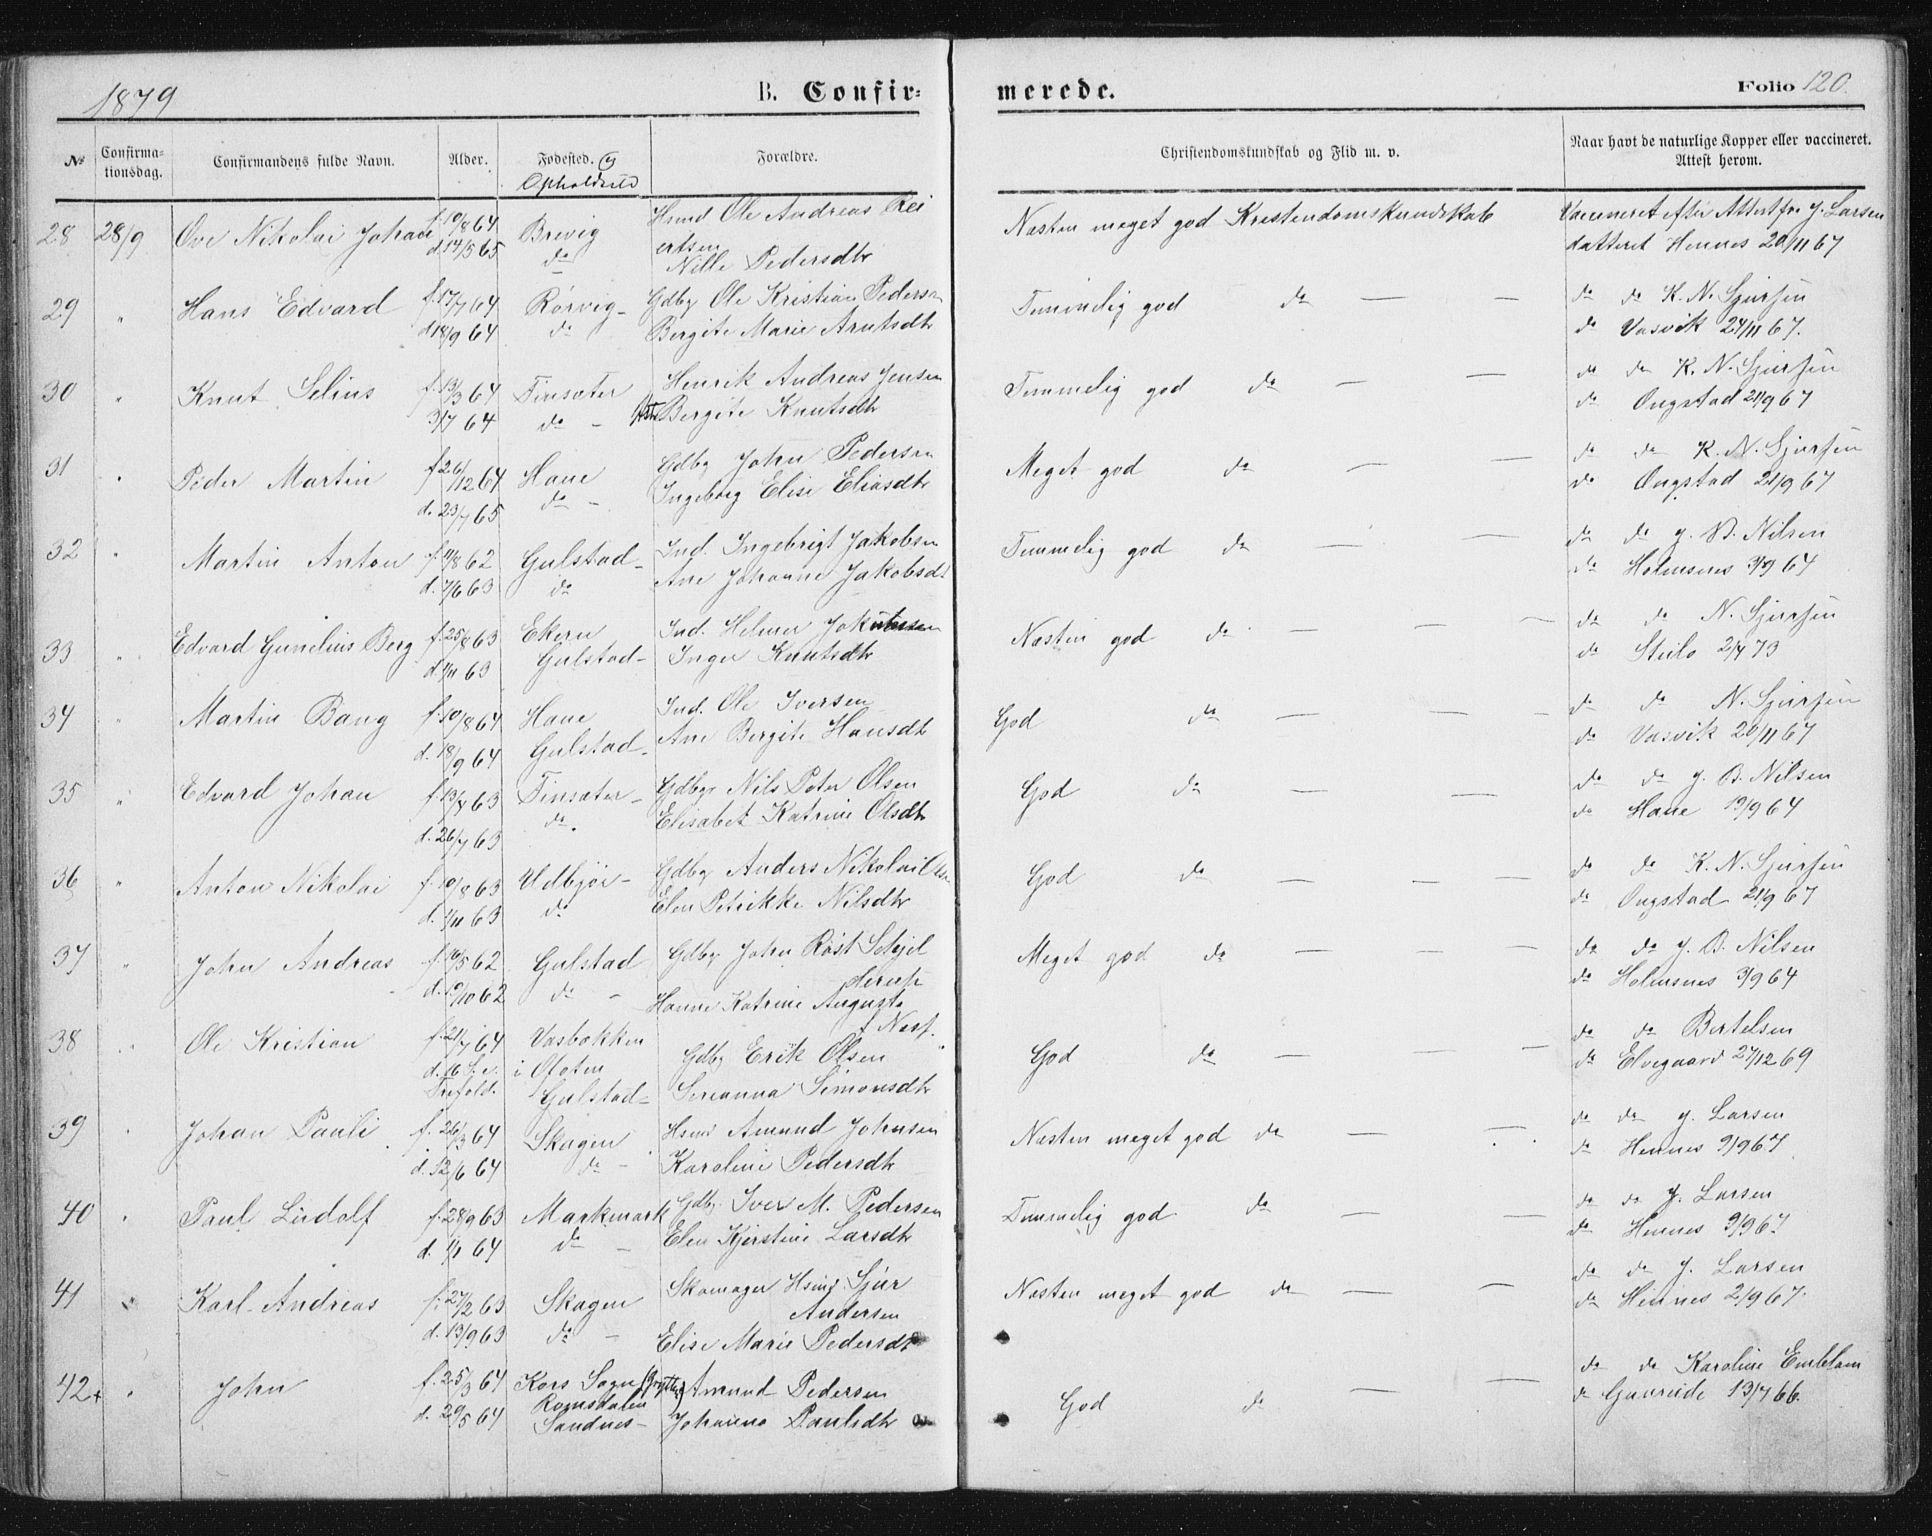 1879
B. Confir= merede.
Folio 120.
No
Confirma=
tionsdag.
Confirmandens fulde Navn.
Alder.
Fødested. og
Opholdssted
Forældre.
Christendomskundskab og Flid m. v.
Naar havt de naturlige Kopper eller vaccineret.
Attest herom.
28 28/9 Ove Nikolai Johan f. 10/8 64 Brevig Hsmd Ole Andreas Rei
d. 14/5 65 do ertsen
Nille Pedersdtr
Næsten meget god Kristendomskundskab
Vaccineret efter Attest fra J. Larsen
datteret Hennes 20/11 67
29 " Hans Edvard f. 17/7 64 Rørvig Gdbr Ole Kristian Pedersen
d 18/9 64 do Bergite Marie Arntsdtr
Temmelig god do — —
do do K. N. Sjursen
do Vasvik 24/11 67.
30 " Knut Selius f. 13/3 64 Finsæter Henrik Andreas Jensen
3/7 64 do - Bergite Knutsdtr
Temmelig god do — —
do do K. N. Sjursen
do Ongstad 21/9 67
31 " Peder Martin f 26/12 64 Hane Gdbr John Pedersen
d. 23/7 65 do - Ingeborg Elise Eliasdtr
Meget god do — —
do do K. N. Sjursen
do Ongstad 21/9 67
32 " Martin Anton f. 11/8 62 Gulstad Ind. Ingebrigt Jakobsen
d. 7/6 63 do Ane Johanne Jakobsdt
Temmelig god do — —
do do J. B. Nilsen
do Holmsnes 3/9 64
33 " Edvard Gunelius Berg f. 25/8 63 Ekern Ind. Helmer
d 1/11 63 Gulstad Inger Knutsdtr
Næsten god do — — —
do do N. Sjursen
do Steilo 2/4 73
34 " Martin Bang f. 10/8 64 Hane Ind. Ole Iversen
d. 18/9 64 Gulstad Ane Bergite Hansdtr
God do — — —
do do N. Sjursen
do Vasvik 20/11 67
35 " Edvard Johan f. 13/4 63 Finsæter Gdbr Nils Peter Olsen
d. 26/7 63 do. Elisabet Katrine Olsdtr
God do — — —
do do J. B. Nilsen
do Hane 19/9 64
36 " Anton Nikolai f. 10/8 63 Udbjør Gdbr Anders Nikolai Olsen
d. 1/11 63 do Elen Petrikke Nilsdtr
God do — — —
do do K. N. Sjursen
do Ongstad 21/9 67
37 " John Andreas f 16/5 62 Gulstad Gdbr John Røst Schjel
d. 19/10 62 do - derup
Hanne Katrine Augusta
f. Norf.
Meget god do — — —
do do J. B. Nilsen
do Holmsnes 3/9 64
38 " Ole Kristian f. 21/7 64 Vasbakken Gdbr Erik Olsen
d. 16 S. e. i Ofoten Sereanna Simonsdtr
Trefold. Gulstad
God do — — —
do do Bertelsen
do Elvegaard 27/12 69
39 " Johan Pauli f. 26/3 64 Skagen Hsmd Amund Johnsen
d. 12/6 64 do - Karoline Pedersdtr
Næsten meget god do — —
do do J. Larsen
do Hennes 9/9 67
40 " Paul Lirdolf f. 28/9 63 Markmark Gdbr. Iver M. Pedersen
d. 1/1 64 do - Elen Kjerstine Larsdtr
Temmelig god do — —
do do J. Larsen
do Hennes 9/9 67
41 " Karl Andreas f. 27/2 63 Skagen Skomager Hsmd. Sjur
d. 13/9 63 do - Andersen
Elise Marie Pedersdtr
Næsten meget god do — —
do do J. Larsen
do Hennes 2/9 67.
42+ " John f. 25/3 64 Kors Sogn Amund Pedersen
d. 29/5 64 Romsdalen
Sandnes Johanna Paulsdtr
God do — —
do do Karoline Emblem
do 13/7 66.